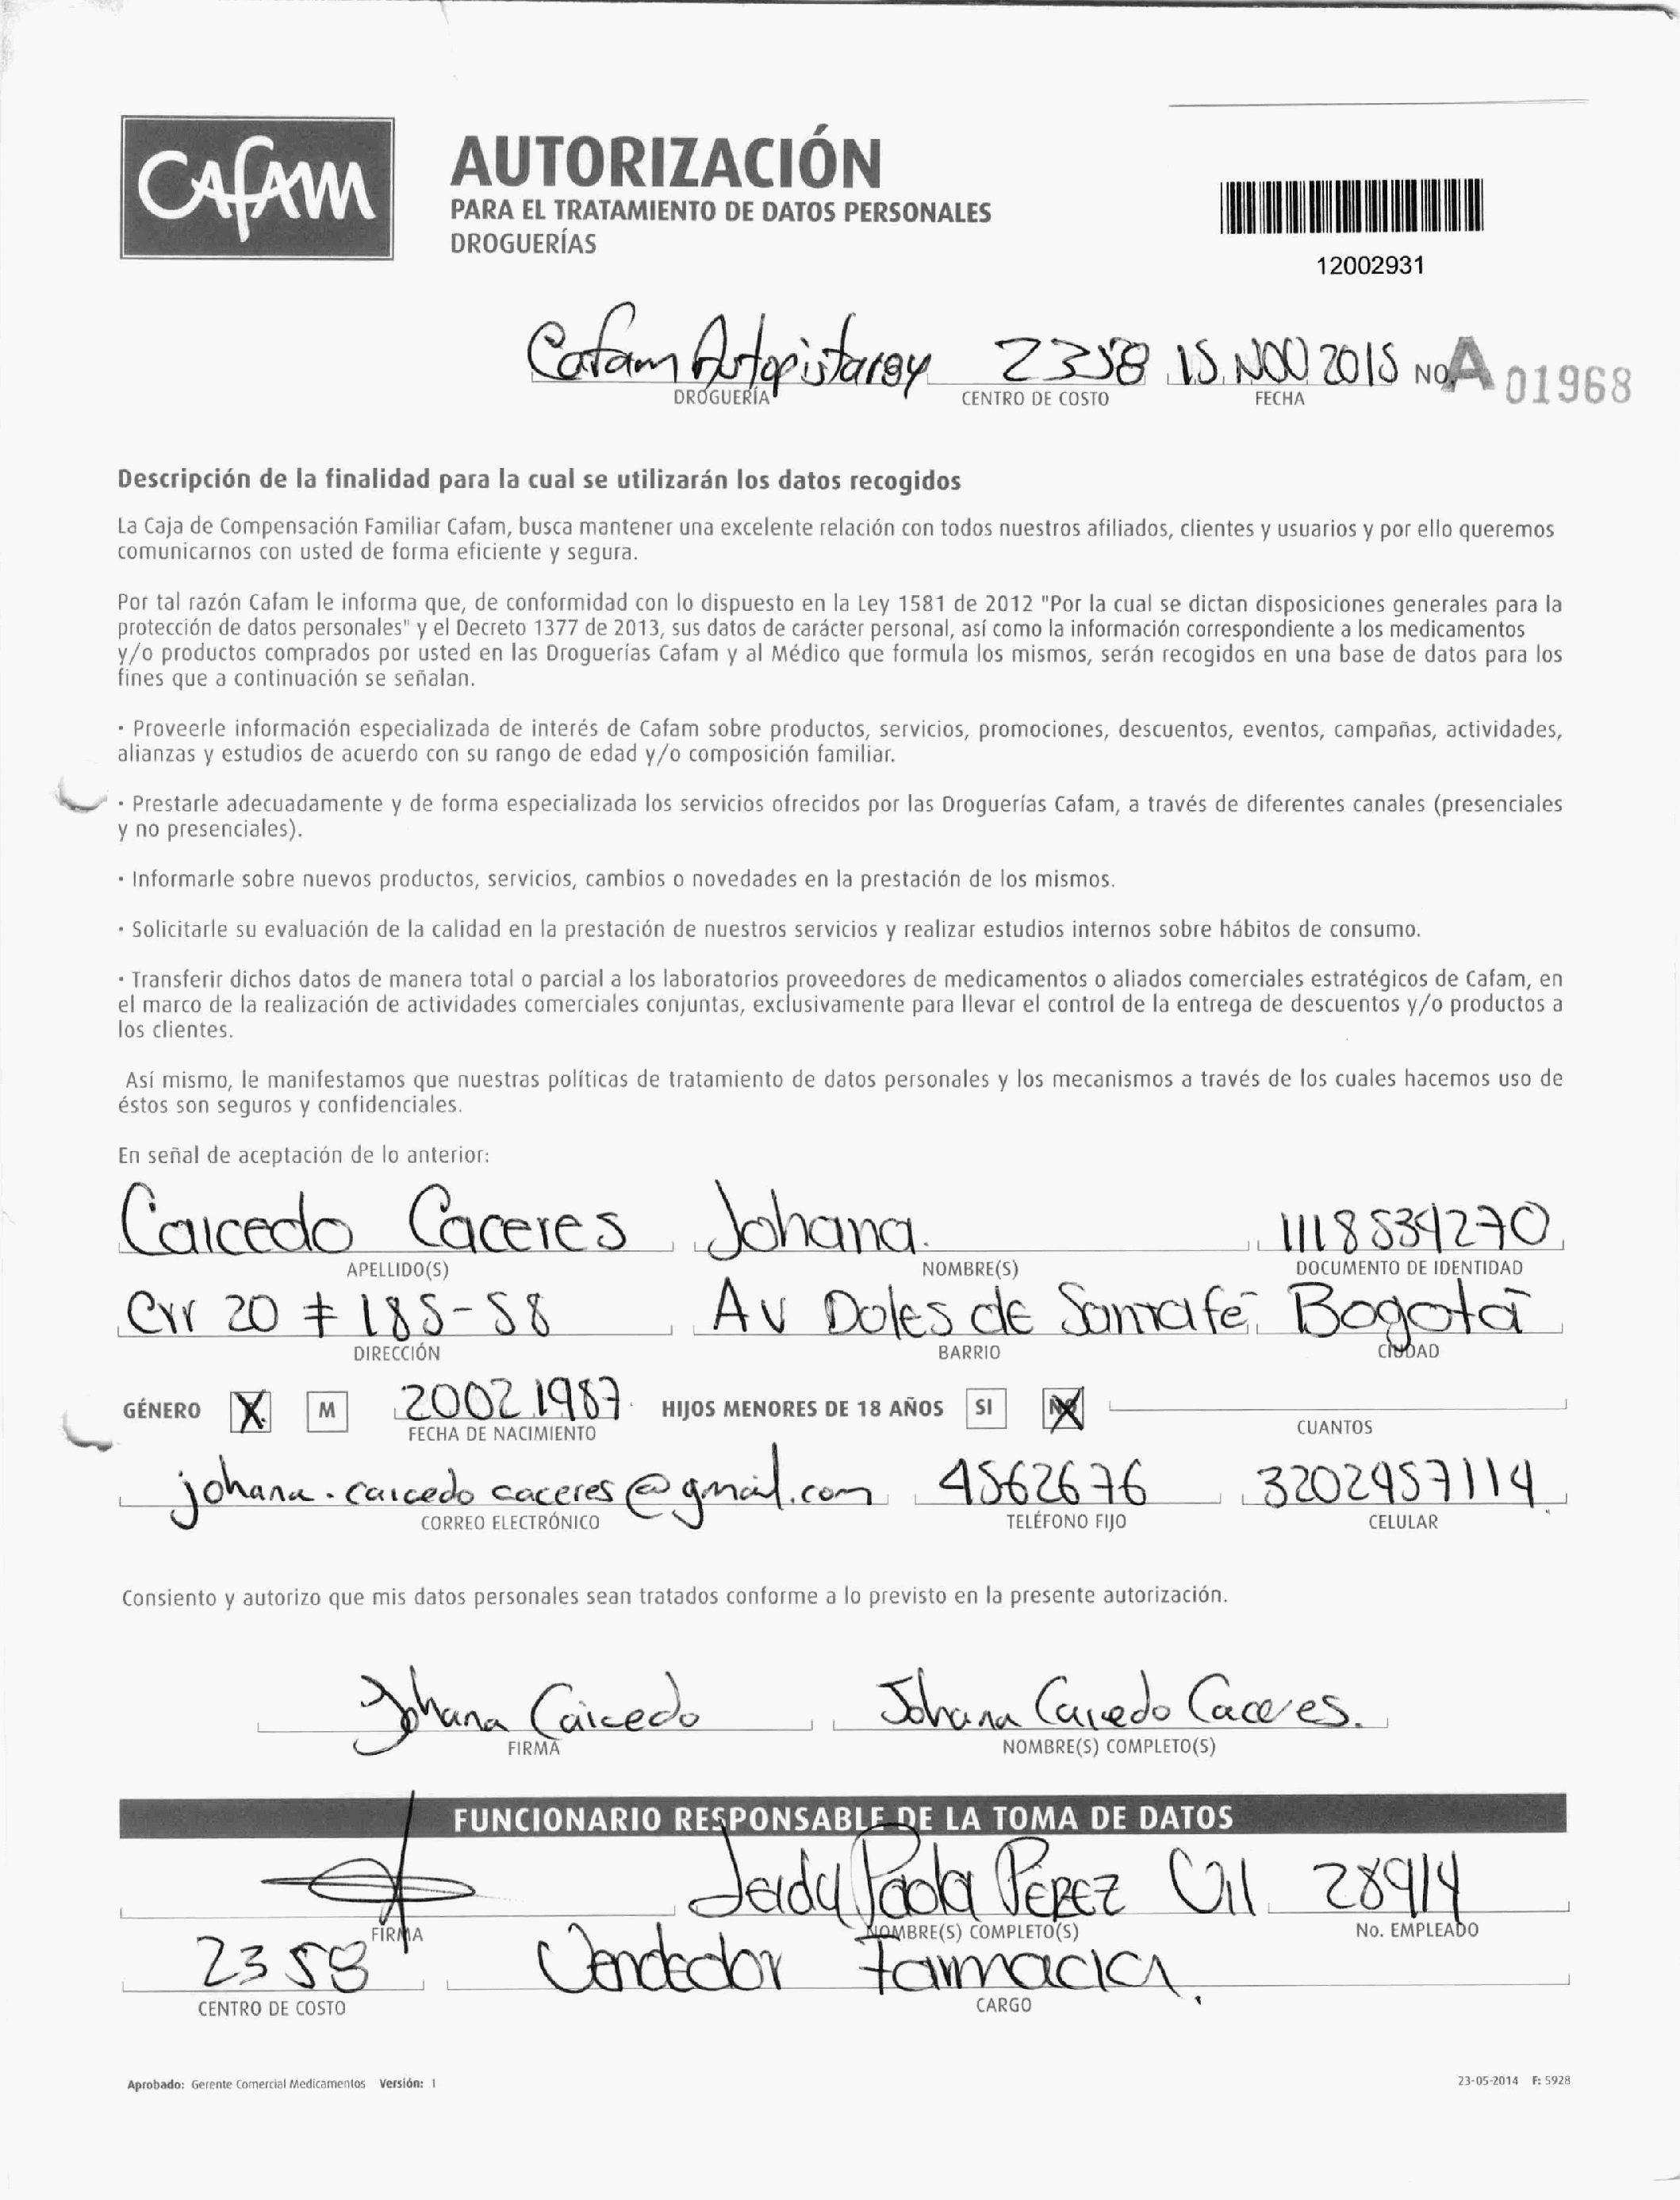 CAFAM
AUTORIZACIÓN
PARA EL TRATAMIENTO DE DATOS PERSONALES
DROGUERÍAS
12002931
Cafam 2358 15 NOV 2015 NO. A 01968
DROGUERÍA CENTRO DE COSTO FECHA
Descripción de la finalidad para la cual se utilizarán los datos recogidos
La Caja de Compensación Familiar Cafam, busca mantener una excelente relación con todos nuestros afiliados, clientes y usuarios y por ello queremos
comunicarnos con usted de forma eficiente y segura.
Por tal razón Cafam le informa que, de conformidad con lo dispuesto en la Ley 1581 de 2012 "Por la cual se dictan disposiciones generales para la
protección de datos personales" y el Decreto 1377 de 2013, sus datos de carácter personal, así como la información correspondiente a los medicamentos
y/o productos comprados por usted en las Droguerías Cafam y al Médico que formula los mismos, serán recogidos en una base de datos para los
fines que a continuación se señalan.
· Proveerle información especializada de interés de Cafam sobre productos, servicios, promociones, descuentos, eventos, campañas, actividades,
alianzas y estudios de acuerdo con su rango de edad y/o composición familiar.
· Prestarle adecuadamente y de forma especializada los servicios ofrecidos por las Droguerías Cafam, a través de diferentes canales (presenciales
y no presenciales).
· Informarle sobre nuevos productos, servicios, cambios o novedades en la prestación de los mismos.
· Solicitarle su evaluación de la calidad en la prestación de nuestros servicios y realizar estudios internos sobre hábitos de consumo.
· Transferir dichos datos de manera total o parcial a los laboratorios proveedores de medicamentos o aliados comerciales estratégicos de Cafam, en
el marco de la realización de actividades comerciales conjuntas, exclusivamente para llevar el control de la entrega de descuentos y/o productos a
los clientes.
Así mismo, le manifestamos que nuestras políticas de tratamiento de datos personales y los mecanismos a través de los cuales hacemos uso de
éstos son seguros y confidenciales.
En señal de aceptación de lo anterior:
Caicedo Caceres Johana. 1118534270
APELLIDO(S) NOMBRE(S) DOCUMENTO DE IDENTIDAD
Crr 20 # 185-58 AV Doles de Santafé Bogotá
DIRECCIÓN BARRIO CIUDAD
GÉNERO X M 20021987 HIJOS MENORES DE 18 AÑOS SI NO
FECHA DE NACIMIENTO CUANTOS
johana.caicedo caceres@gmail.com 4562676 3202957114
CORREO ELECTRÓNICO TELÉFONO FIJO CELULAR
Consiento y autorizo que mis datos personales sean tratados conforme a lo previsto en la presente autorización.
Johana Caicedo Johana Caicedo Caceres.
FIRMA NOMBRE(S) COMPLETO(S)
FUNCIONARIO RESPONSABLE DE LA TOMA DE DATOS
Leidy Paola Pérez Gil 28914
FIRMA NOMBRE(S) COMPLETO(S) No. EMPLEADO
2358 Vendedor Farmacia.
CENTRO DE COSTO CARGO
Aprobado: Gerente Comercial Medicamentos Versión: 1 23-05-2014 F: 5928